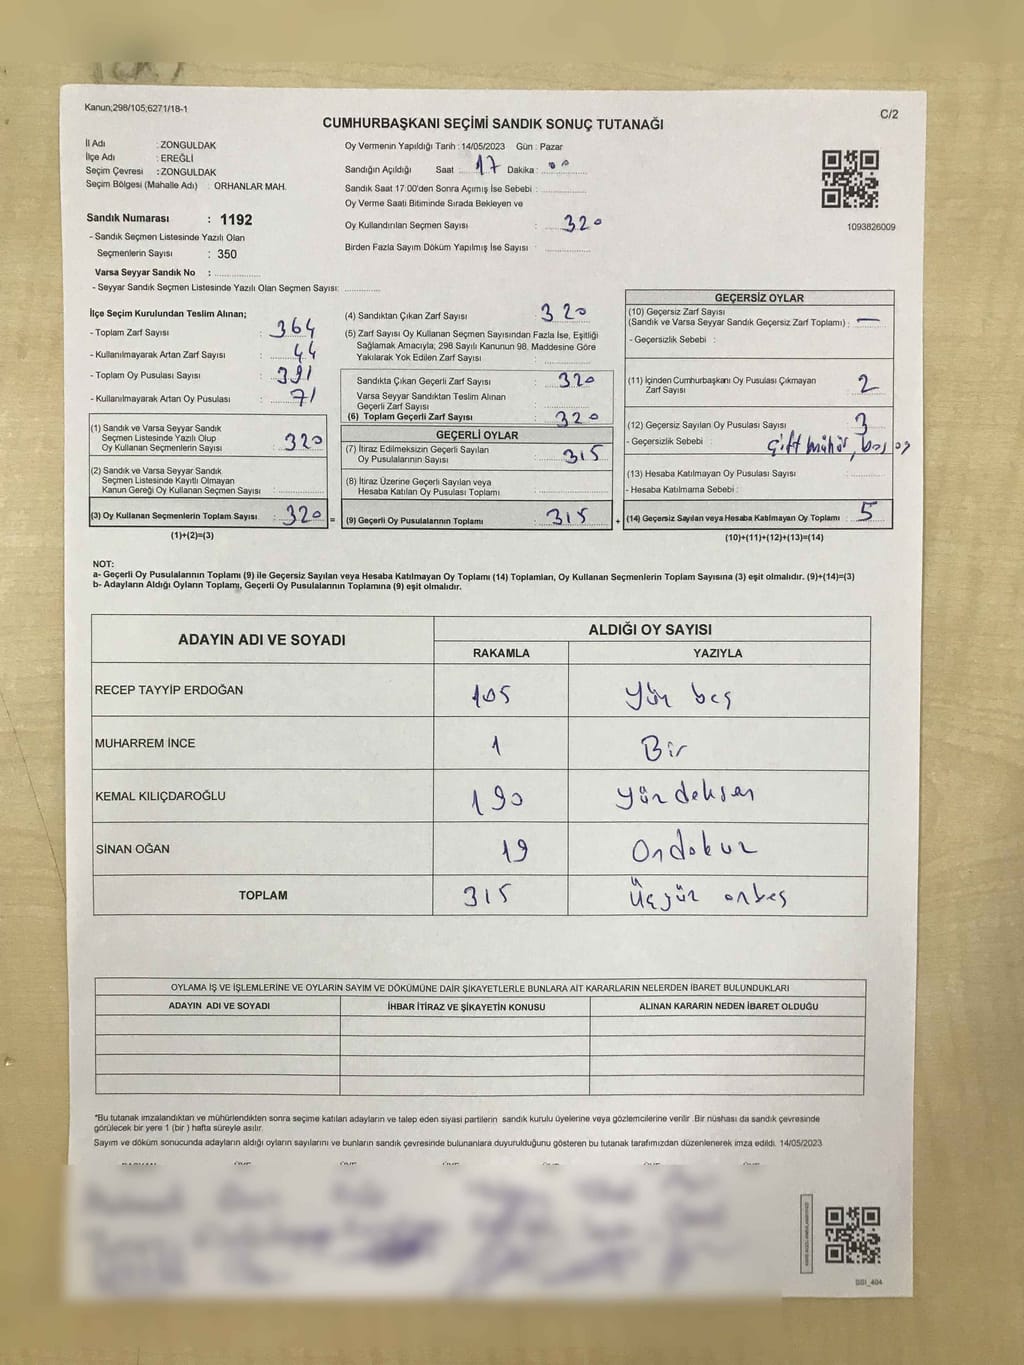 Kanun;298/105;6271/18-1
C/2
CUMHURBAŞKANI SEÇİMİ SANDIK SONUÇ TUTANAĞI
İl Adı : ZONGULDAK
İlçe Adı : EREĞLİ
Seçim Çevresi : ZONGULDAK
Seçim Bölgesi (Mahalle Adı) : ORHANLAR MAH.
Sandık Numarası : 1192
- Sandık Seçmen Listesinde Yazılı Olan
Seçmenlerin Sayısı : 350
Varsa Seyyar Sandık No :
- Seyyar Sandık Seçmen Listesinde Yazılı Olan Seçmen Sayısı:
Oy Vermenin Yapıldığı Tarih : 14/05/2023 Gün : Pazar
Sandığın Açıldığı Saat : 17 Dakika : 00
Sandık Saat 17:00'den Sonra Açımış İse Sebebi :
Oy Verme Saati Bitiminde Sırada Bekleyen ve
Oy Kullandırılan Seçmen Sayısı : 320
Birden Fazla Sayım Döküm Yapılmış İse Sayısı :
1093826009
İlçe Seçim Kurulundan Teslim Alınan;
- Toplam Zarf Sayısı : 364
- Kullanılmayarak Artan Zarf Sayısı : 44
- Toplam Oy Pusulası Sayısı : 391
- Kullanılmayarak Artan Oy Pusulası : 71
(1) Sandık ve Varsa Seyyar Sandık
Seçmen Listesinde Yazılı Olup
Oy Kullanan Seçmenlerin Sayısı : 320
(2) Sandık ve Varsa Seyyar Sandık
Seçmen Listesinde Kayıtlı Olmayan
Kanun Gereği Oy Kullanan Seçmen Sayısı :
(3) Oy Kullanan Seçmenlerin Toplam Sayısı : 320 =
(1)+(2)=(3)
(4) Sandıktan Çıkan Zarf Sayısı : 320
(5) Zarf Sayısı Oy Kullanan Seçmen Sayısından Fazla İse, Eşitliği
Sağlamak Amacıyla; 298 Sayılı Kanunun 98. Maddesine Göre
Yakılarak Yok Edilen Zarf Sayısı :
Sandıkta Çıkan Geçerli Zarf Sayısı : 320
Varsa Seyyar Sandıktan Teslim Alınan
Geçerli Zarf Sayısı :
(6) Toplam Geçerli Zarf Sayısı : 320
GEÇERLİ OYLAR
(7) İtiraz Edilmeksizin Geçerli Sayılan
Oy Pusulalarının Sayısı : 315
(8) İtiraz Üzerine Geçerli Sayılan veya
Hesaba Katılan Oy Pusulası Toplamı :
(9) Geçerli Oy Pusulalarının Toplamı : 315 +
GEÇERSİZ OYLAR
(10) Geçersiz Zarf Sayısı
(Sandık ve Varsa Seyyar Sandık Geçersiz Zarf Toplamı) : —
- Geçersizlik Sebebi :
(11) İçinden Cumhurbaşkanı Oy Pusulası Çıkmayan
Zarf Sayısı : 2
(12) Geçersiz Sayılan Oy Pusulası Sayısı : 3
- Geçersizlik Sebebi : Çift mühür, boş oy
(13) Hesaba Katılmayan Oy Pusulası Sayısı :
- Hesaba Katılmama Sebebi :
(14) Geçersiz Sayılan veya Hesaba Katılmayan Oy Toplamı : 5
(10)+(11)+(12)+(13)=(14)
NOT:
a- Geçerli Oy Pusulalarının Toplamı (9) ile Geçersiz Sayılan veya Hesaba Katılmayan Oy Toplamı (14) Toplamları, Oy Kullanan Seçmenlerin Toplam Sayısına (3) eşit olmalıdır. (9)+(14)=(3)
b- Adayların Aldığı Oyların Toplamı, Geçerli Oy Pusulalarının Toplamına (9) eşit olmalıdır.
ADAYIN ADI VE SOYADI ALDIĞI OY SAYISI
RAKAMLA YAZIYLA
RECEP TAYYİP ERDOĞAN 105 Yüz beş
MUHARREM İNCE 1 Bir
KEMAL KILIÇDAROĞLU 190 yüzdoksan
SİNAN OĞAN 19 Ondokuz
TOPLAM 315 Üçyüz onbeş
OYLAMA İŞ VE İŞLEMLERİNE VE OYLARIN SAYIM VE DÖKÜMÜNE DAİR ŞİKAYETLERLE BUNLARA AİT KARARLARIN NELERDEN İBARET BULUNDUKLARI
ADAYIN ADI VE SOYADI İHBAR İTİRAZ VE ŞİKAYETİN KONUSU ALINAN KARARIN NEDEN İBARET OLDUĞU
*Bu tutanak imzalandıktan ve mühürlendikten sonra seçime katılan adayların ve talep eden siyasi partilerin sandık kurulu üyelerine veya gözlemcilerine verilir .Bir nüshası da sandık çevresinde
görülecek bir yere 1 (bir ) hafta süreyle asılır.
Sayım ve döküm sonucunda adayların aldığı oyların sayılarını ve bunların sandık çevresinde bulunanlara duyurulduğunu gösteren bu tutanak tarafımızdan düzenlenerek imza edildi. 14/05/2023